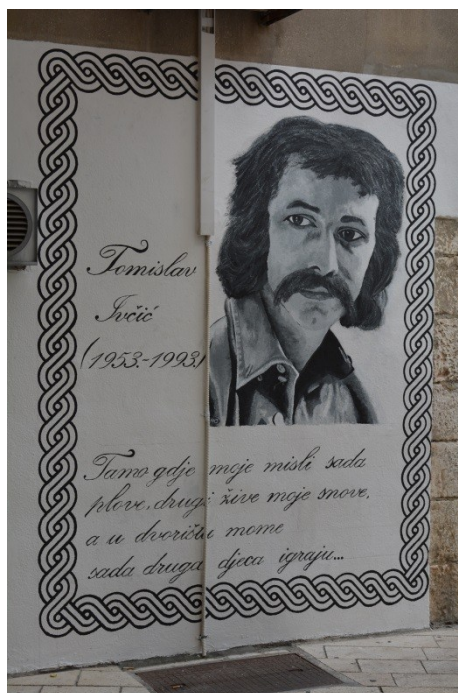 Tomislav
Ivčić
(1953.-1993.)
Tamo gdje moje misli sada
plove, drugi žive moje snove,
a u dvorištu mome
sada druga djeca igraju...